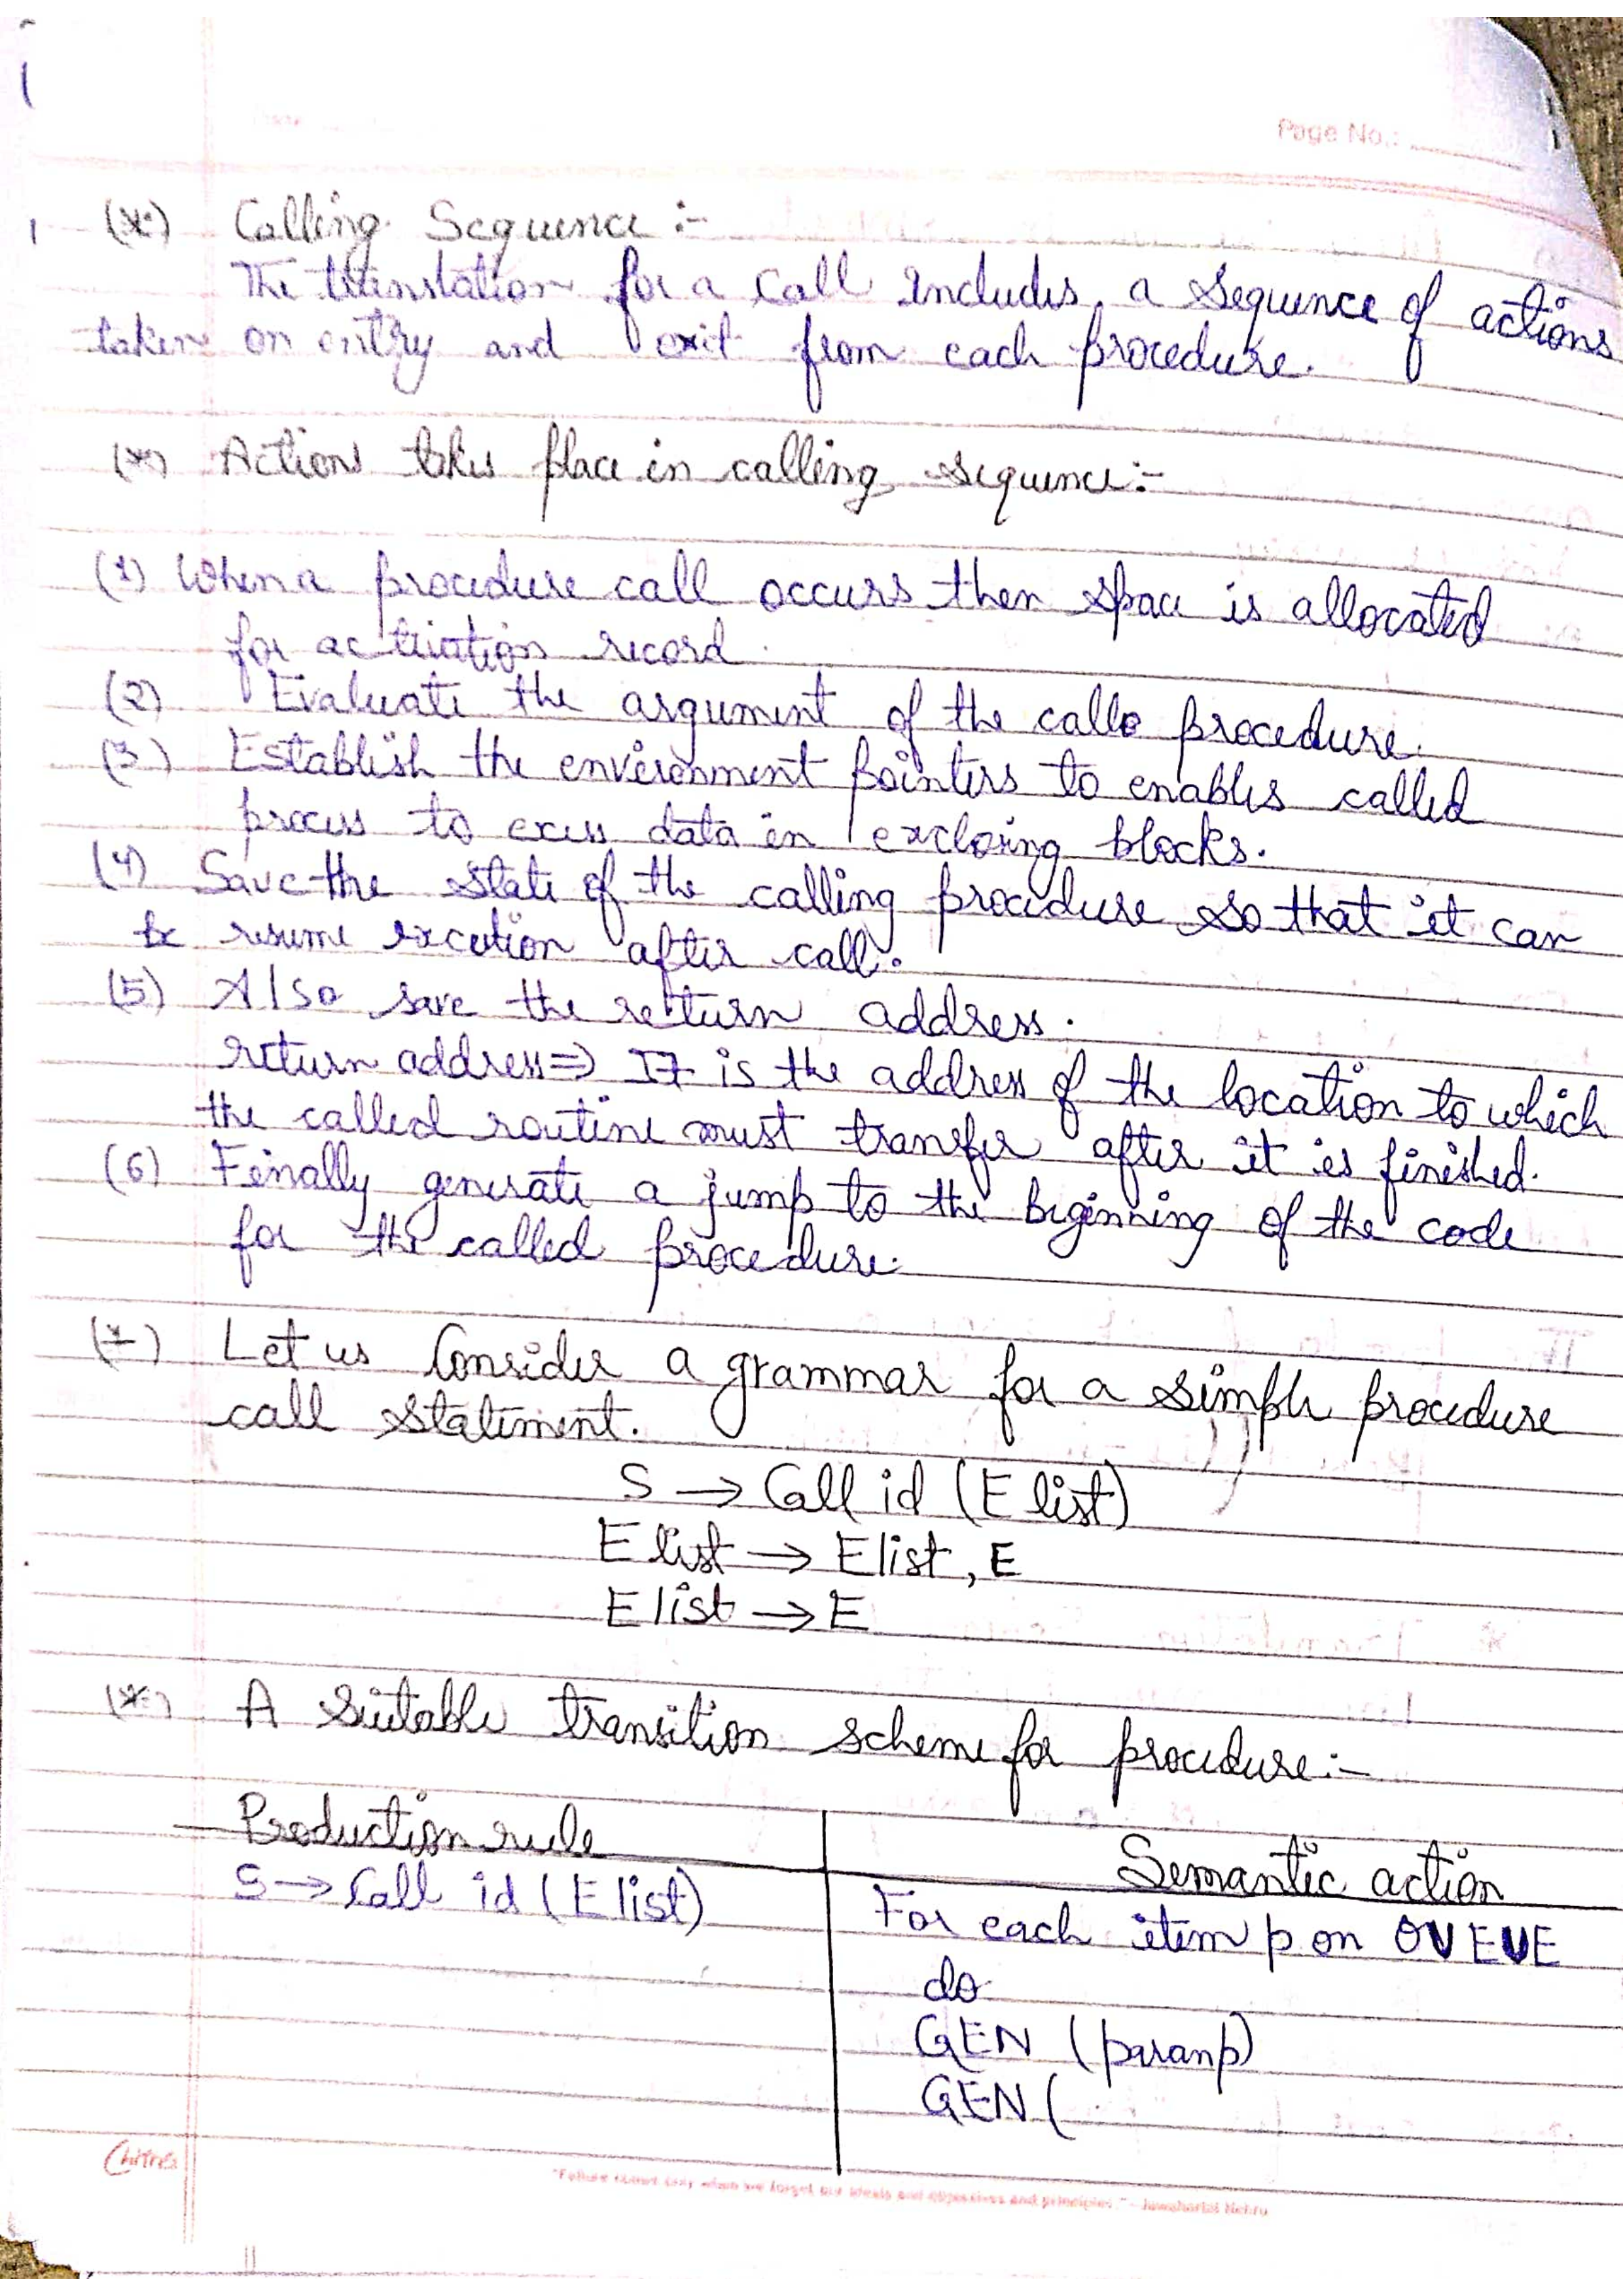 Page No.:
(*) Calling Sequence :-
The translation for a call includes a sequence of actions
taken on entry and exit from each procedure.
(*) Actions takes place in calling sequence:-
(1) When a procedure call occurs then space is allocated
for activation record.
(2) Evaluate the argument of the calle procedure.
(3) Establish the environment pointers to enables called
process to excess data in excloxing blocks.
(4) Save the state of the calling procedure so that it can
resume execution after call.
(5) Also save the return address.
return address => It is the address of the location to which
the called routine must transfer after it is finished.
(6) Finally generate a jump to the beginning of the code
for the called procedure.
(*) Let us Consider a grammar for a simple procedure
call statement.
S → Call id (E list)
E list → Elist, E
E list → E
(*) A suitable transition scheme for procedure:-
Production rule
Semantic action
S → Call id (E list)
For each item p on QUEUE
do
GEN (paramp)
GEN (
Chitra
"Failure comes only when we forget our ideals and objectives and principles." - Jawaharlal Nehru